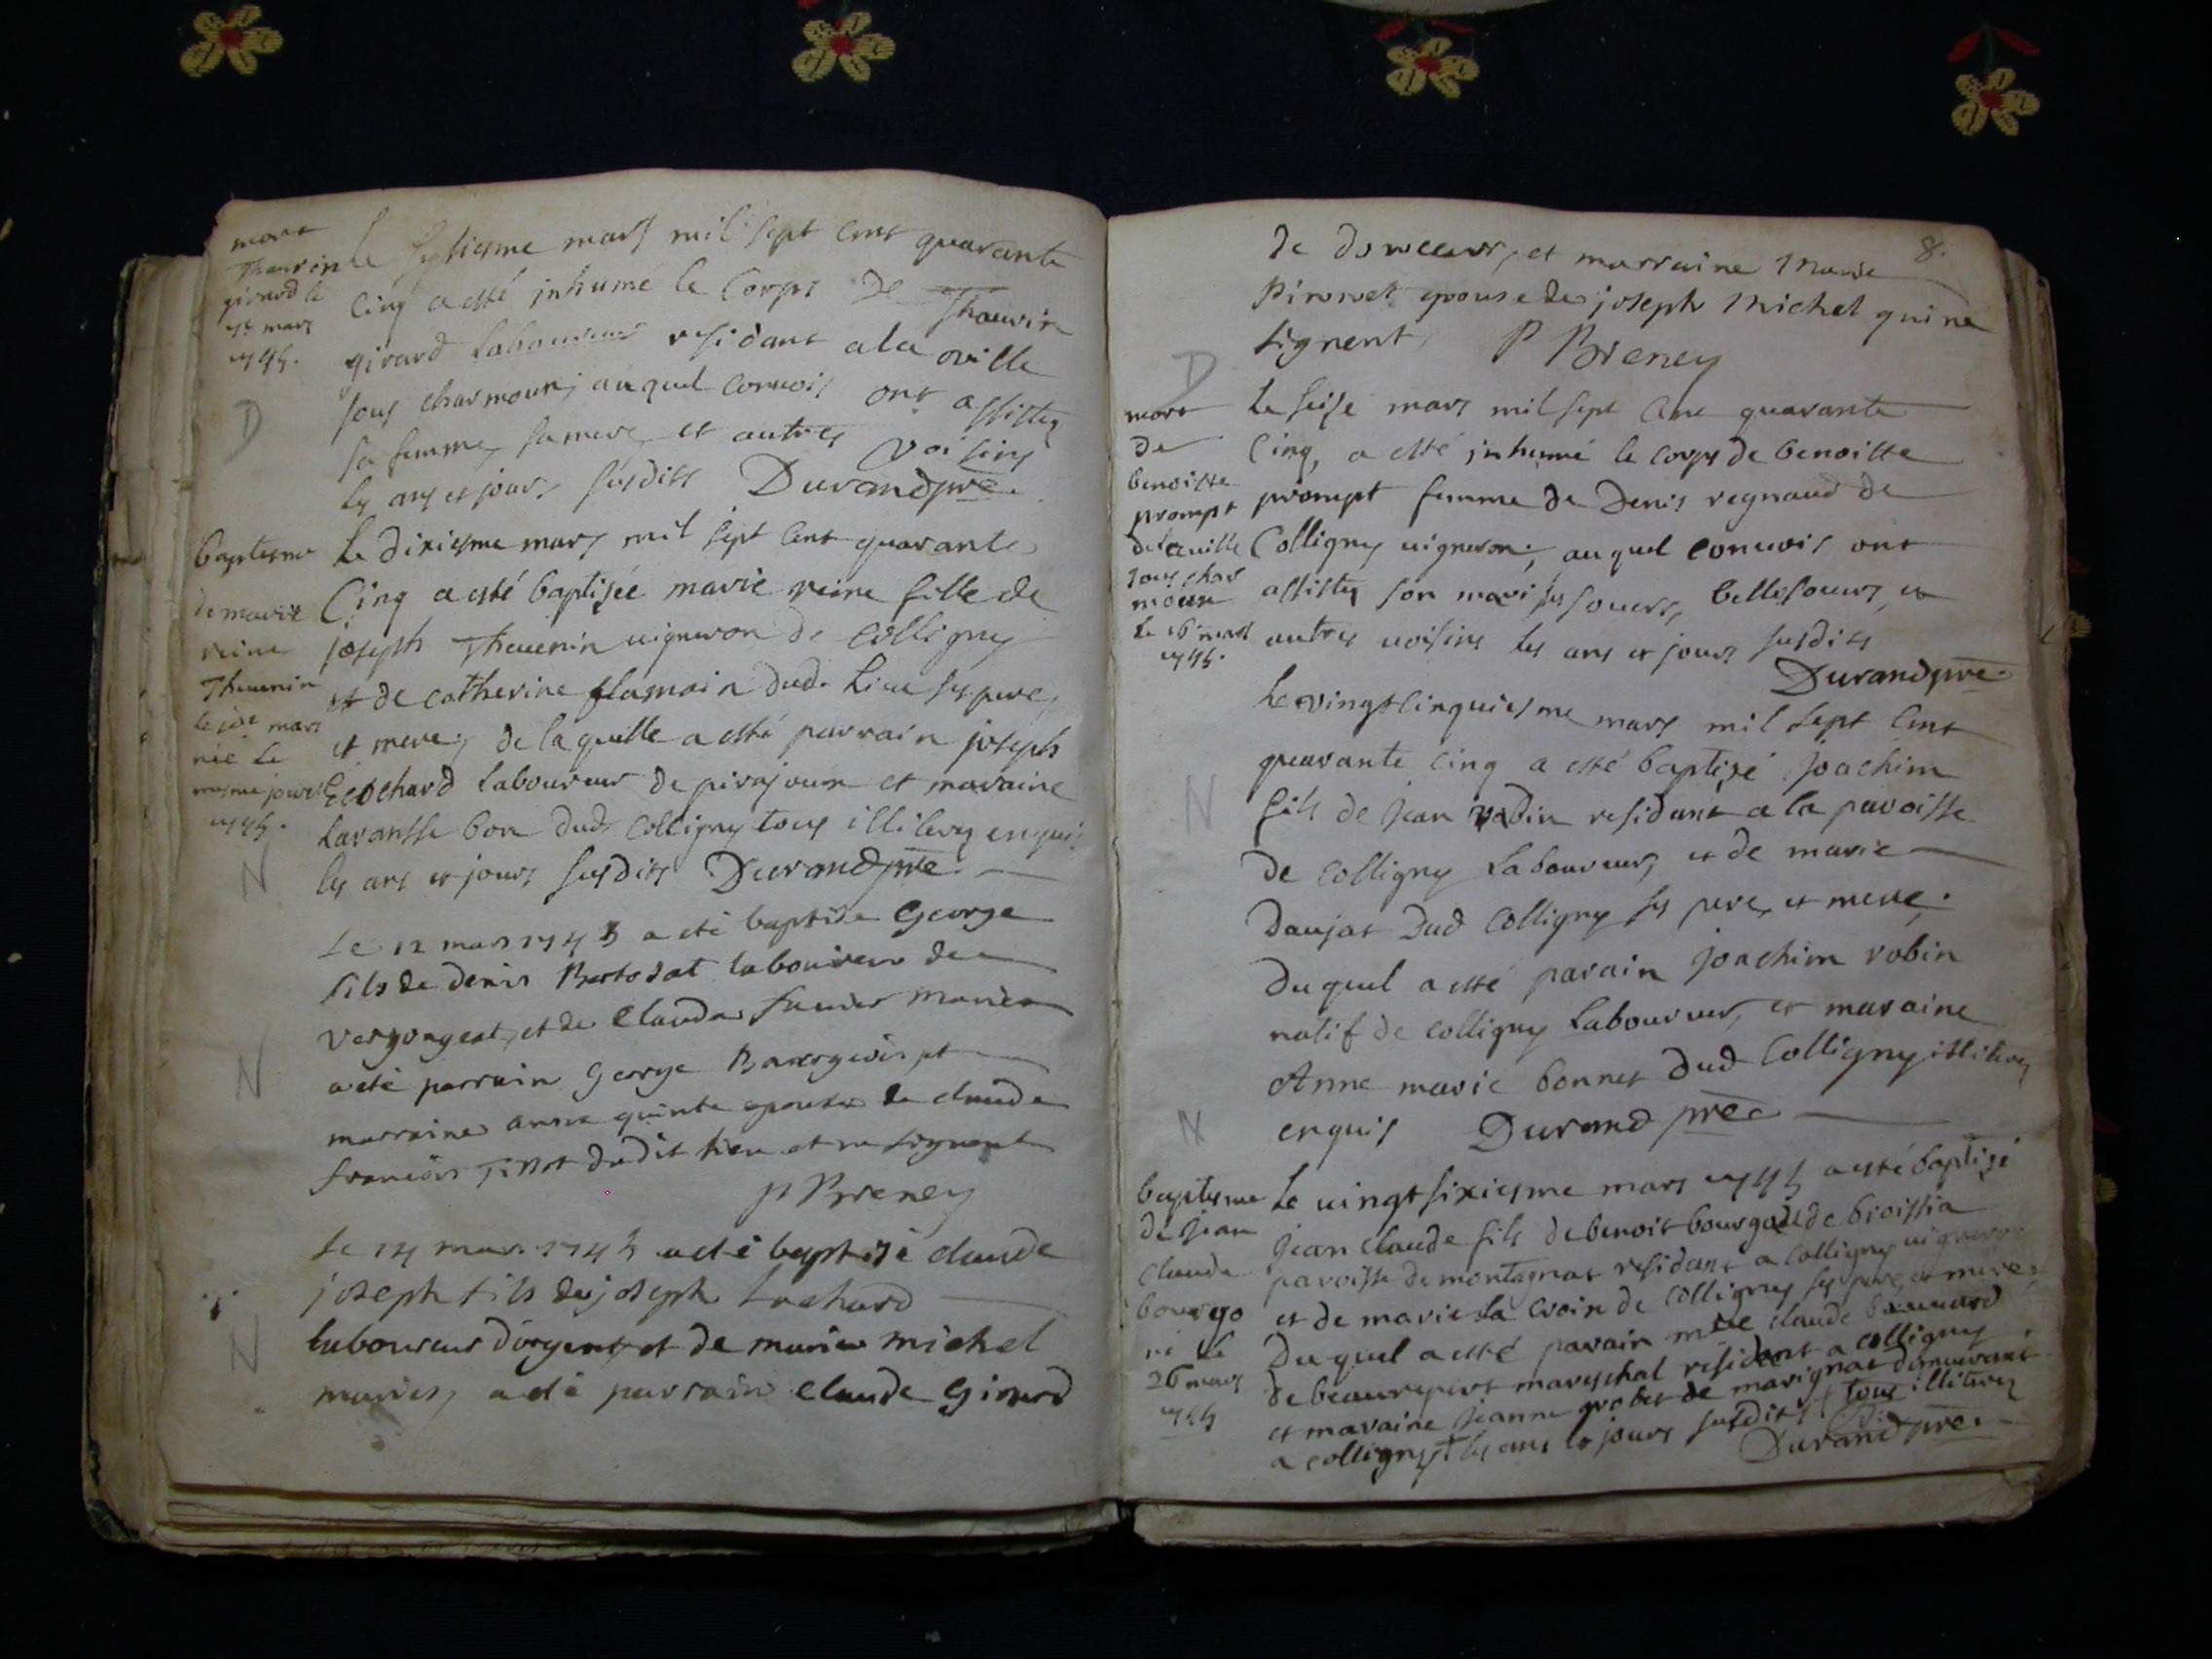 mort
Thauvin
girard le
7e mars
1745.
D
le septiesme mars mil sept cent quarante
cinq a esté inhume le corps de Thauvin
girard laboureur residant a la ville
sous charmoux; auquel convois ont assistez
sa femme, sa mere, et autres voisins
les ans et jours susdits Durand pre.
baptesme
de marie
reine
Thevenin
le 10e mars
née le
mesme jour
1745.
N
Le dixiesme mars mil sept cent quarante
cinq a esté baptisée marie reine fille de
joseph Thevenin vigneron de colligny
et de catherine flamain dud. Lieu ses pere,
et mere; de laquelle a esté parrain joseph
Ecochard laboureur de pirajoux et maraine
Laransse bon dud. colligny tous illiterez enquis
les ans et jours susdits Durand pre.
N
Le 12 mars 1745 a eté baptise George
fils de denis Bertodat laboureur de
vergongeat, et de Clauda mariés
a eté parrain George Bourgeois, et
marraine anne quinte epouse de claude
françois dudit lieu et ne signent
P Breney
N
Le 14 mars 1745 a eté baptisé claude
joseph fils de joseph Lochard
laboureur d'orgent, et de marie michel
mariés, a eté parrain claude Girard
8.
de donceurs, et marraine marie
Pironet epouse de joseph michel qui ne
signent, P Breney
D
mort
de
benoiste
prompt
de la ville
sous char
moux
le 16 mars
1745.
Le seise mars mil sept cent quarante
cinq, a esté inhumé le corps de benoitte
prompt femme de Denis regnaud de
Colligny vigneron; auquel convois ont
assistez son mari ses souers, bellesoeurs, et
autres voisins les ans et jours susdits
Durand pre.
N
Le vingt cinquiesme mars mil sept cent
quarante cinq a esté baptizé joachim
fils de jean robin residant a la paroisse
de colligny laboureur, et de marie
daujat dud. colligny ses pere, et mere;
duquel a esté parain joachim robin
natif de colligny laboureur, et maraine
Anne marie bonnet dud. Colligny illiterez
enquis Durand pre
N
baptesme
de jean
claude
bourgo
né le
26 mars
1745
Le vingt sixiesme mars 1745 a esté baptizé
jean claude fils de benoit bourgo de broissia
paroisse de montagnat residant a colligny vigneron
et de marie la croix de colligny ses pere, et mere;
Duquel a esté parain claude
de beaurepere mareschal residant a colligny
et maraine jeanne grobet de marignat demeurant
a colligny les ans et jours susdits tous illiterez
Durand pre.